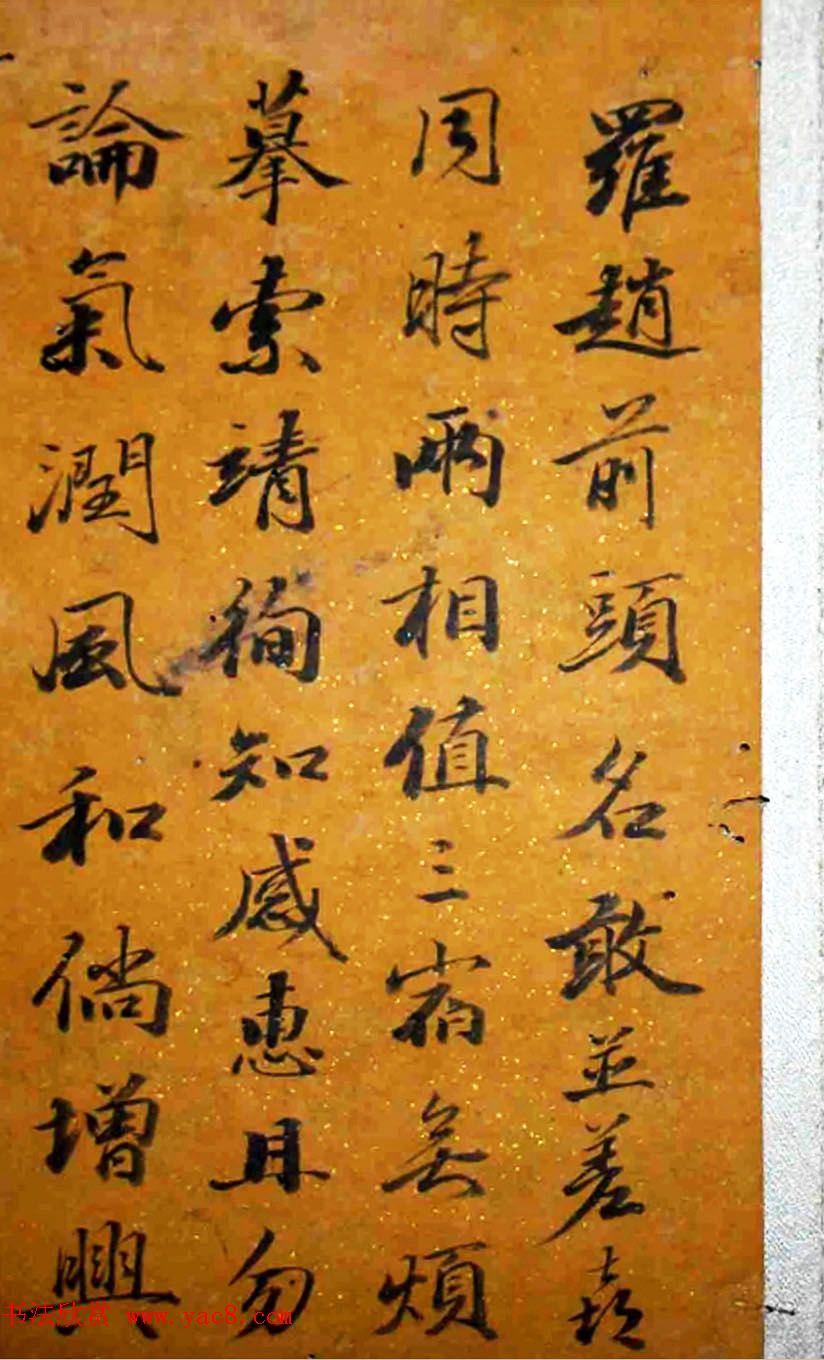 羅趙前頭名敢並差喜
同時兩相值三宿無煩
摹索靖徇知感惠且勿
論氣潤風和倘增興
书法欣赏 www.yac8.com